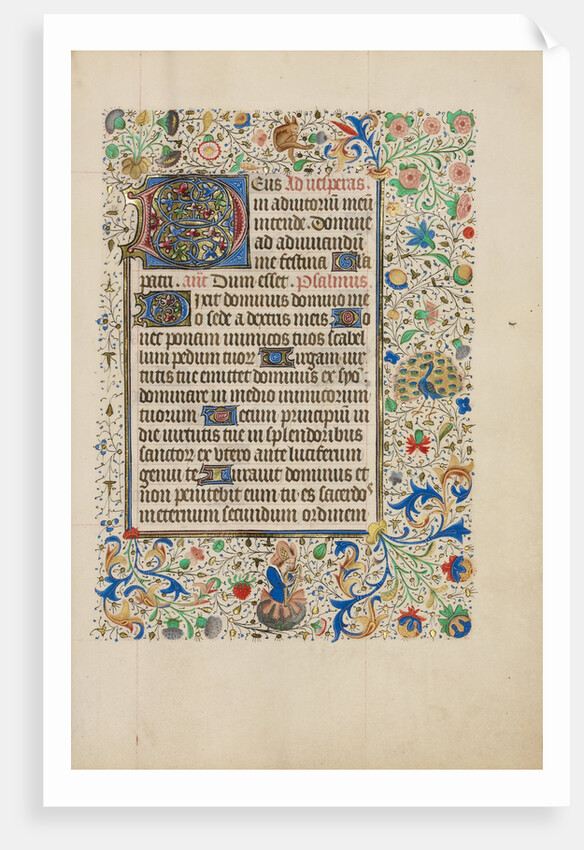 Deus Ad vesperas.
in adiutoriū meū
intende. Domine
ad adiuuandū
me festina Gla
patri. añt Dum esset. Psalmus.
Dixit dominus domino me
o sede a dextris meis Do
nec ponam inimicos tuos scabel
lum pedum tuoꝝ Uirgam uir
tutis tue emittet dominus ex syo
dominare in medio inimicorum
tuorum Tecum principiū in
die uirtutis tue in splendoribus
sanctoꝝ ex vtero ante luciferum
genui te Iurauit dominus et
non penitebit eum tu es sacerdos
in eternum secundum ordinem